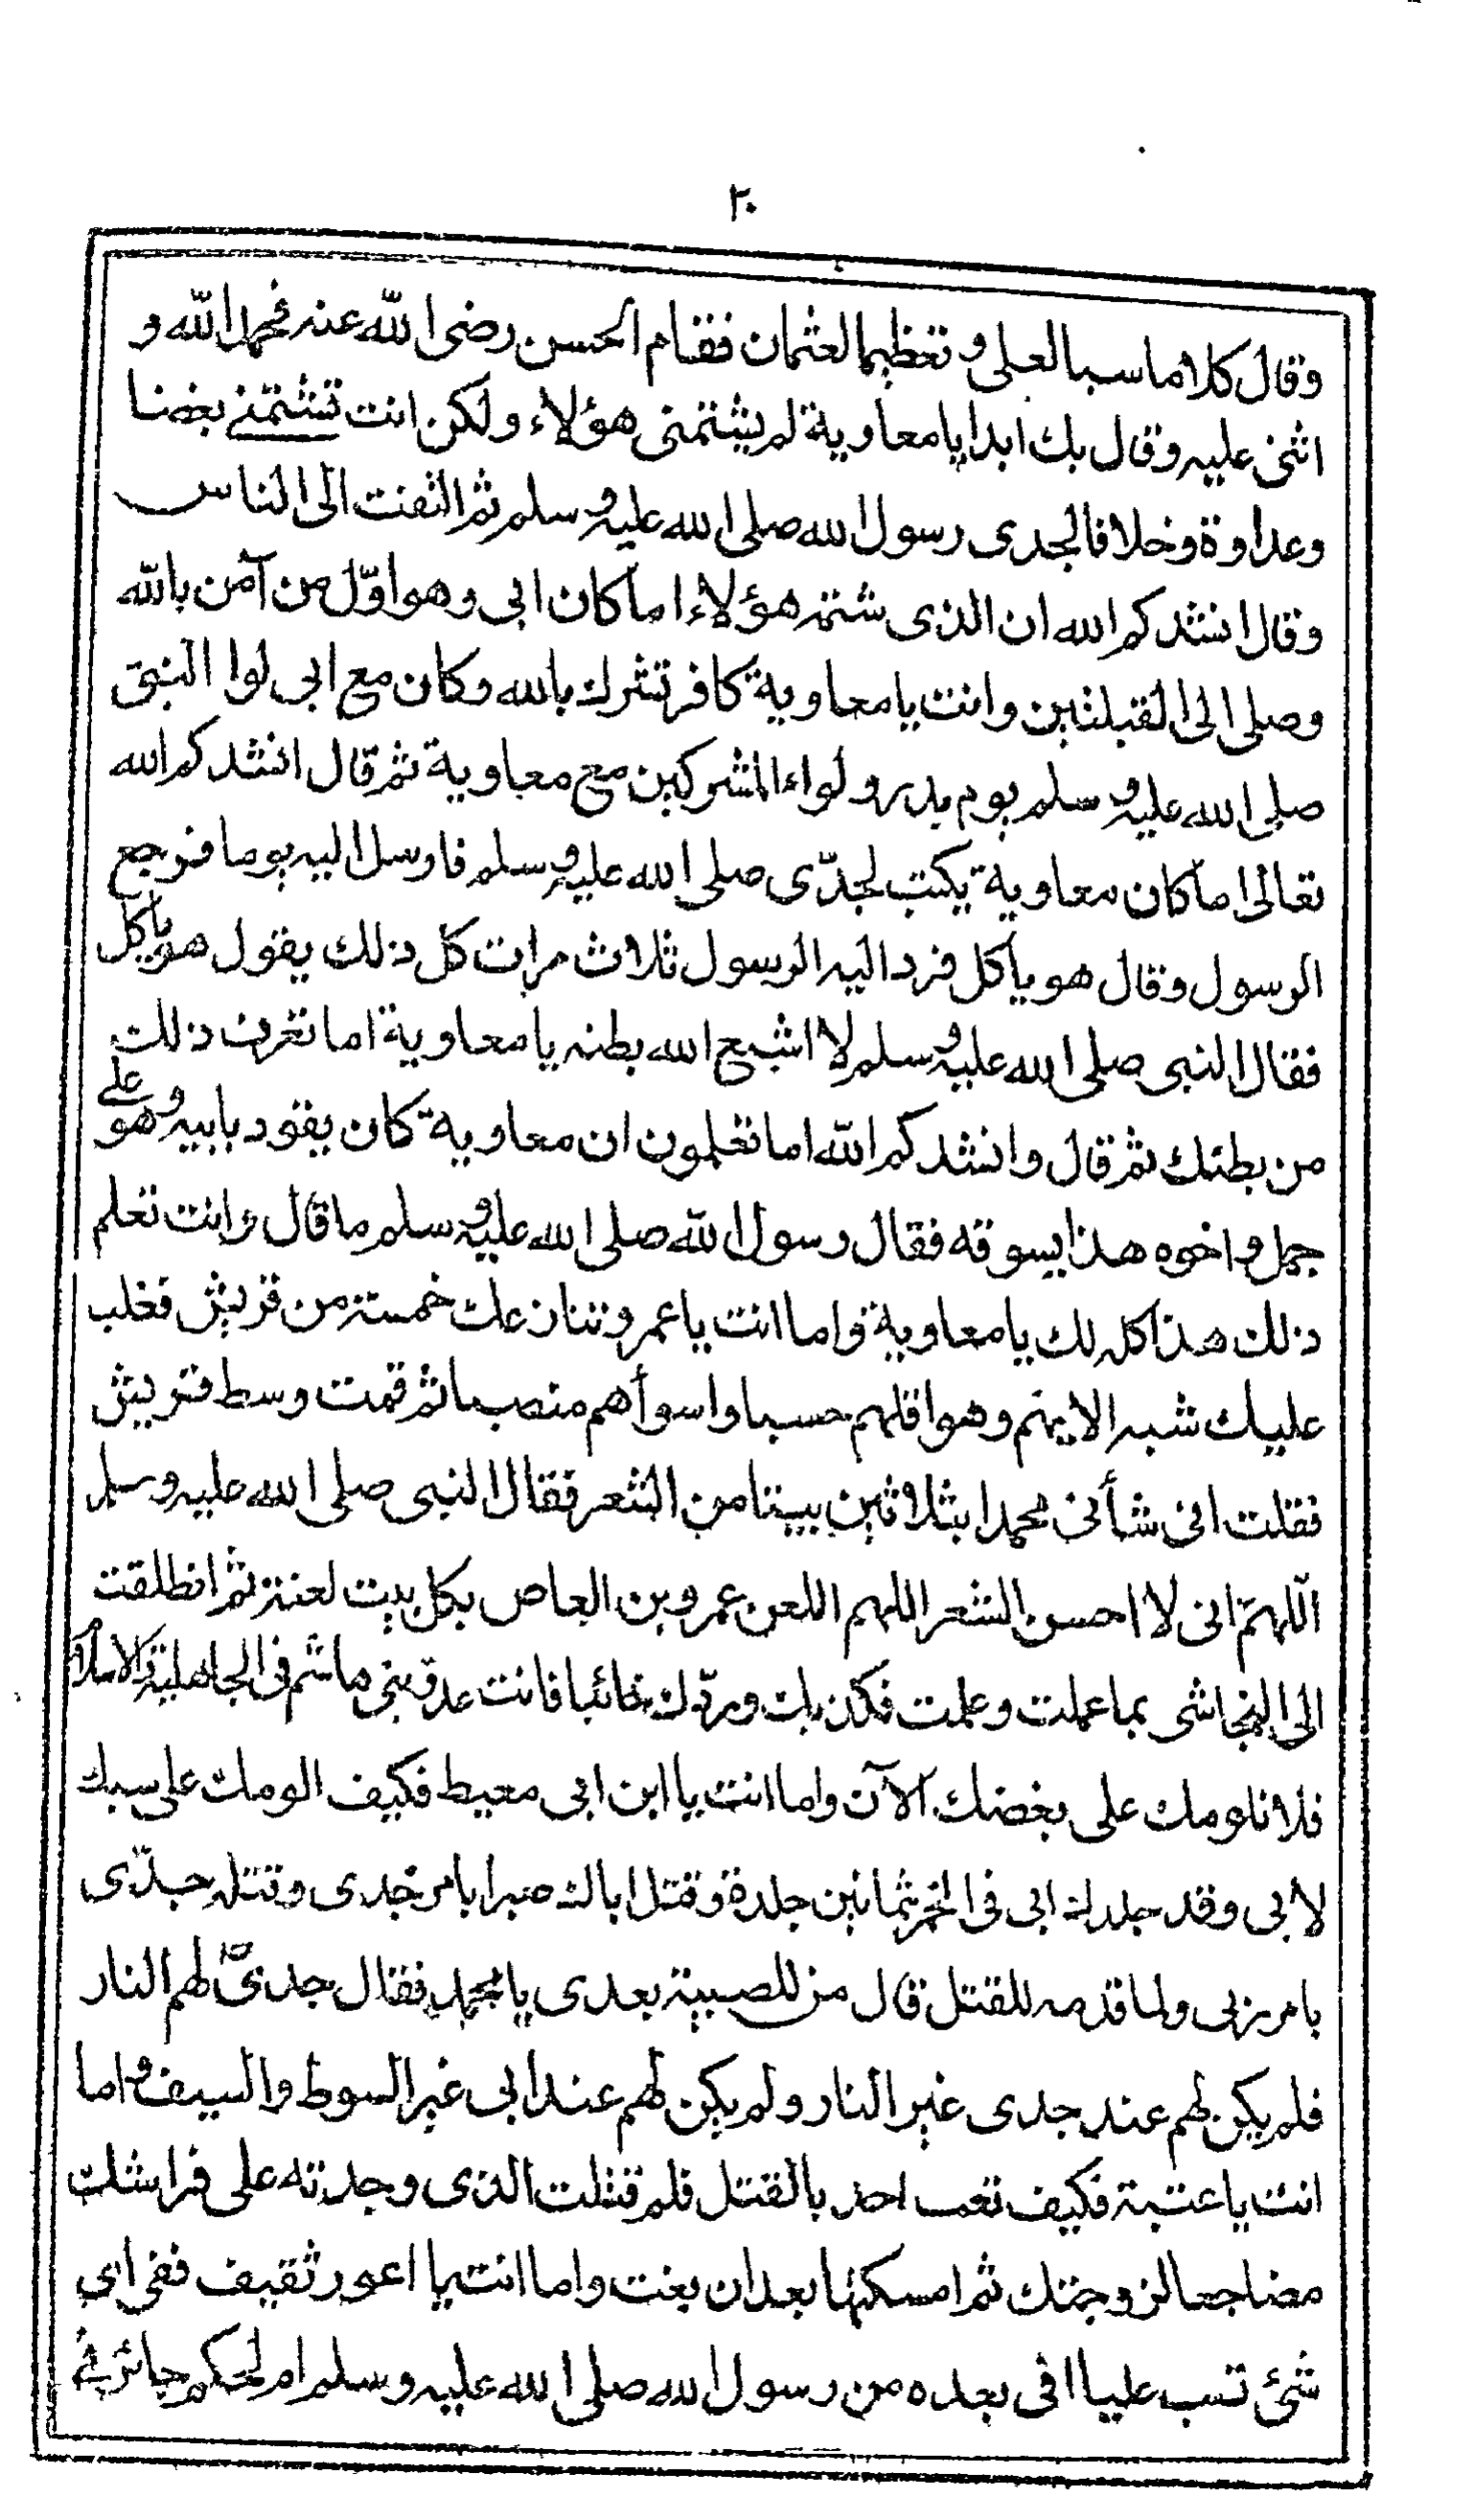 ٢٠
وقال كلاما سبا لعلى و تعظيما لعثمان فقام الحسن رضى الله عنه فحمد الله و
اثنى عليه وقال بك ابدا يا معاوية لم يشتمنى هؤلاء ولكن انت تشتمنے بغضا
وعداوة وخلافا لجدى رسول الله صلى الله عليه وسلم ثم التفت الى الناس
وقال انشدكم الله ان الذى شتمه هؤلاء اما كان ابى وهو اوّل من آمن بالله
وصلى الى القبلتين وانت يا معاوية كافر تشرك بالله وكان مع ابى لوا النبى
صلى الله عليه وسلم يوم بدر ولواء المشركين مع معاوية ثم قال انشدكم الله
تعالى اما كان معاوية يكتب لجدّى صلى الله عليه وسلم فارسل اليه يوما فرجع
الرسول وقال هو يأكل فرد اليه الرسول ثلاث مرات كل ذلك يقول هو يأكل
فقال النبى صلى الله عليه وسلم لا اشبع الله بطنه يا معاوية اما تعرف ذلك
من بطنك ثم قال وانشدكم الله اما تعلمون ان معاوية كان يقود بابيه وهو على
جمل واخوه هذا يسوقه فقال رسول الله صلى الله عليه وسلم ما قال وانت تعلم
ذلك هذا كله لك يا معاوية واما انت يا عمرو تنازعك خمسة من قريش فغلب
عليك شبه الايهم وهو اقلهم حسبا واسوأهم منصبا ثم قمت وسط قريش
فقلت انى شأنى محمدا بثلاثين بيتا من الشعر فقال النبى صلى الله عليه وسلم
اللهمّ انى لا احسن الشعر اللهم اللعن عمرو بن العاص بكل بيت لعنة ثم انطلقت
الى النجاشى بما عملت وعلمت فكذبك وردّك خائبا فانت عدو بنى هاشم فى الجاهلية والاسلام
فلا نلومك على بغضك الآن واما انت يا ابن ابى معيط فكيف الومك على سبك
لابى وقد جلدك ابى فى الخمر ثمانين جلدة وقتل اباك صبرا بامر جدى وقتله جدّى
بامر ربى ولما قدمه للقتل قال من للصبية بعدى يا محمد فقال جدىّ لهم النار
فلم يكن لهم عند جدى غير النار ولم يكن لهم عند ابى غير السوط والسيف واما
انت يا عتبة فكيف تعب احد بالقتل فلم قتلت الذى وجدته على فراشك
مضاجعا لزوجتك ثم امسكتها بعد ان بغت واما انت يا اعور ثقيف ففى اى
شئ تسب عليا افى بعده من رسول الله صلى الله عليه وسلم ام لحكم جائر فى